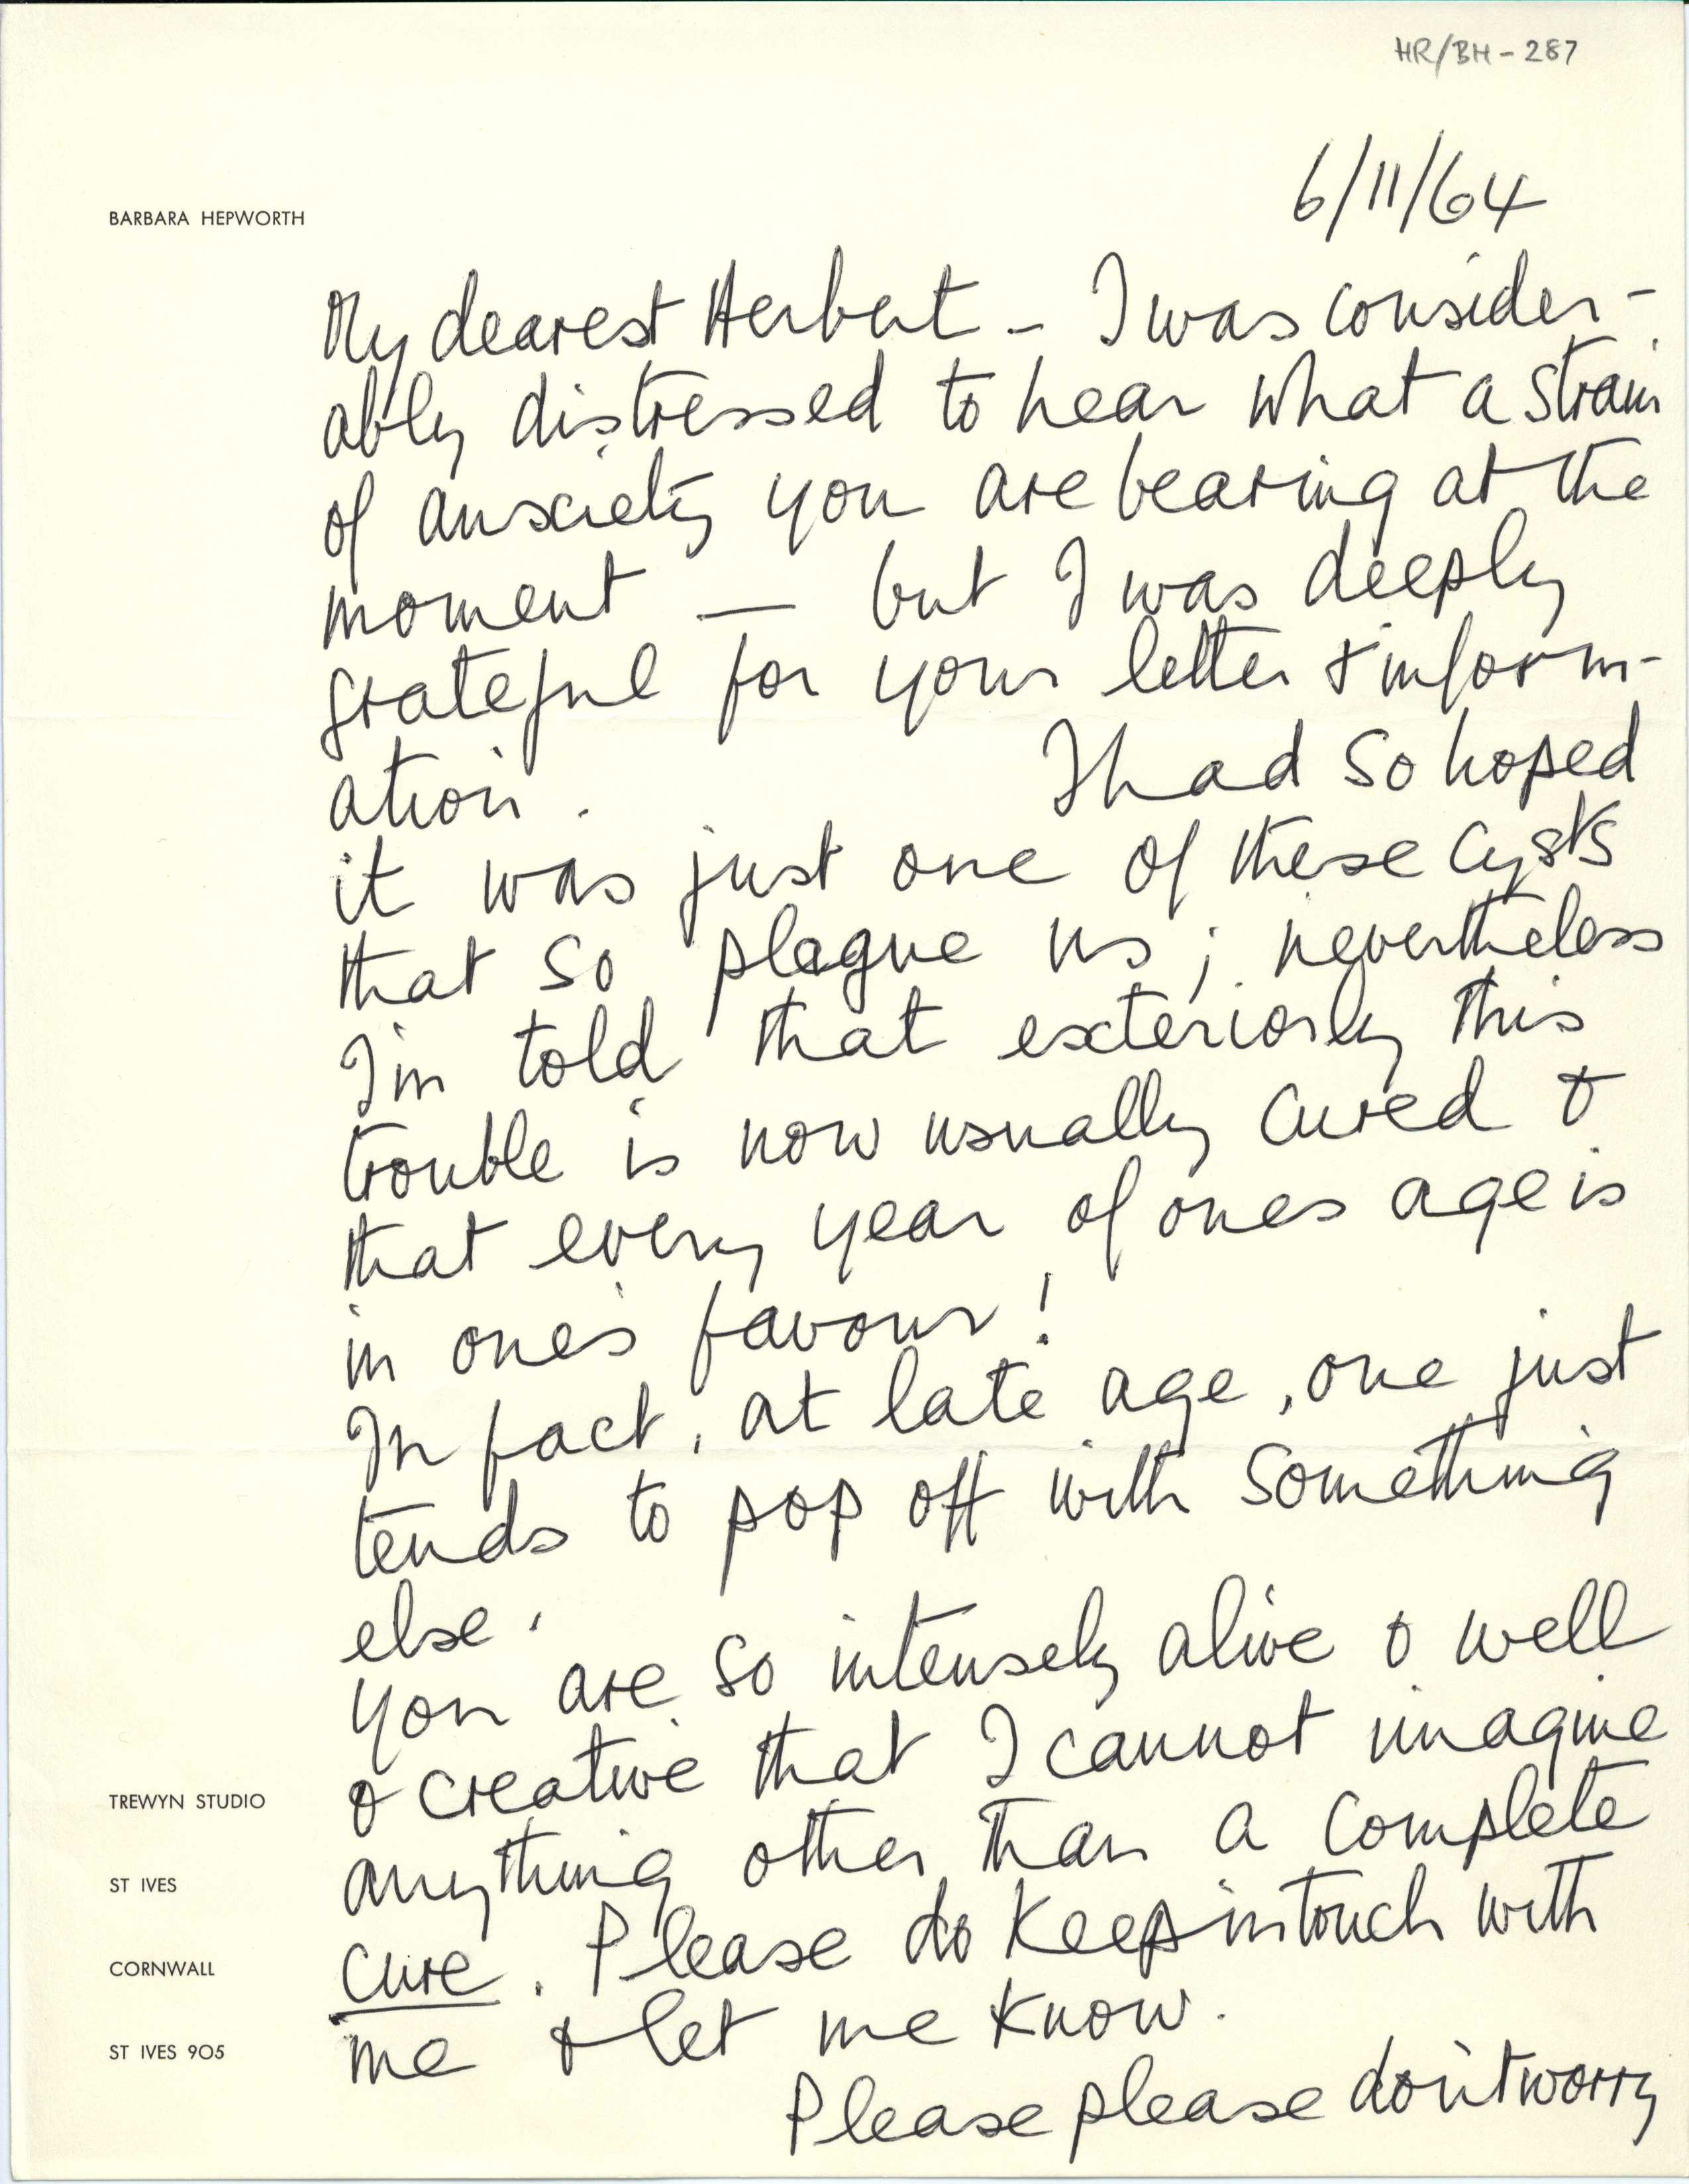 HR/BH - 287
6/11/64
BARBARA HEPWORTH
My dearest Herbert - I was consider-
ably distressed to hear what a strain
of anxiety you are bearing at the
moment — but I was deeply
grateful for your letter & inform-
ation. I had so hoped
it was just one of these cysts
that so plague us; nevertheless
I'm told that exteriorly this
trouble is now usually cured &
that every year of ones age is
in one's favour!
In fact, at late age, one just
tends to pop off with something
else.
You are so intensely alive & well
& creative that I cannot imagine
TREWYN STUDIO
anything other than a complete
ST IVES
cure. Please do keep in touch with
CORNWALL
me & let me know.
ST IVES 905
Please please don't worry